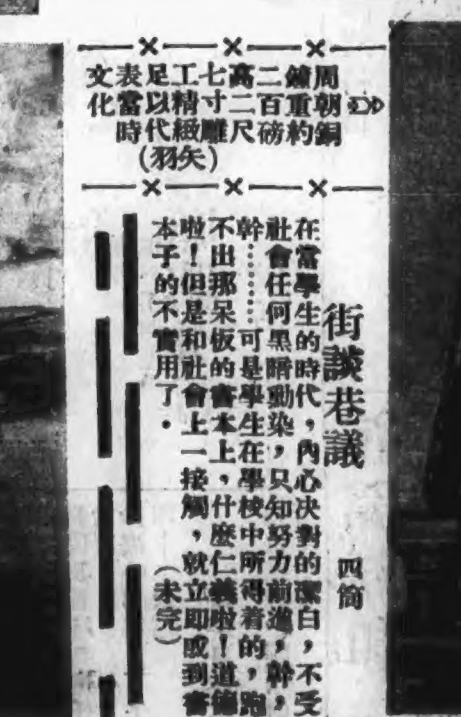 周朝銅
鐘重約
二百磅
高二尺
七寸雕
工精緻
足以代
表當時
文化
(羽矢)
街談巷議
四筒
在當學生的時代，內心決對的潔白，不受
社會任何黑暗動染，只知努力前進，幹，
幹⋯⋯⋯可是學生在學校中所得着的，跑
不出那呆板的書本上，什麼仁義啦！道德
啦！但是和社會上一接觸，就立即感到書
本子的不實用了．
（未完）